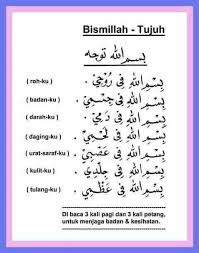 Bismillah - Tujuh
بسم الله توجه
( roh-ku ) بِسْمِ اللهِ فِى رُوْحِيْ .
( badan-ku ) بِسْمِ اللهِ فِى جِسْمِيْ .
( darah-ku ) بِسْمِ اللهِ فِى دَمِيْ .
( daging-ku ) بِسْمِ اللهِ فِى لَحْمِيْ .
( urat-saraf-ku ) بِسْمِ اللهِ فِى عَصَبِيْ .
( kulit-ku ) بِسْمِ اللهِ فِى جِلْدِيْ .
( tulang-ku ) بِسْمِ اللهِ فِى عَظْمِيْ .
Di baca 3 kali pagi dan 3 kali petang,
untuk menjaga badan & kesihatan.